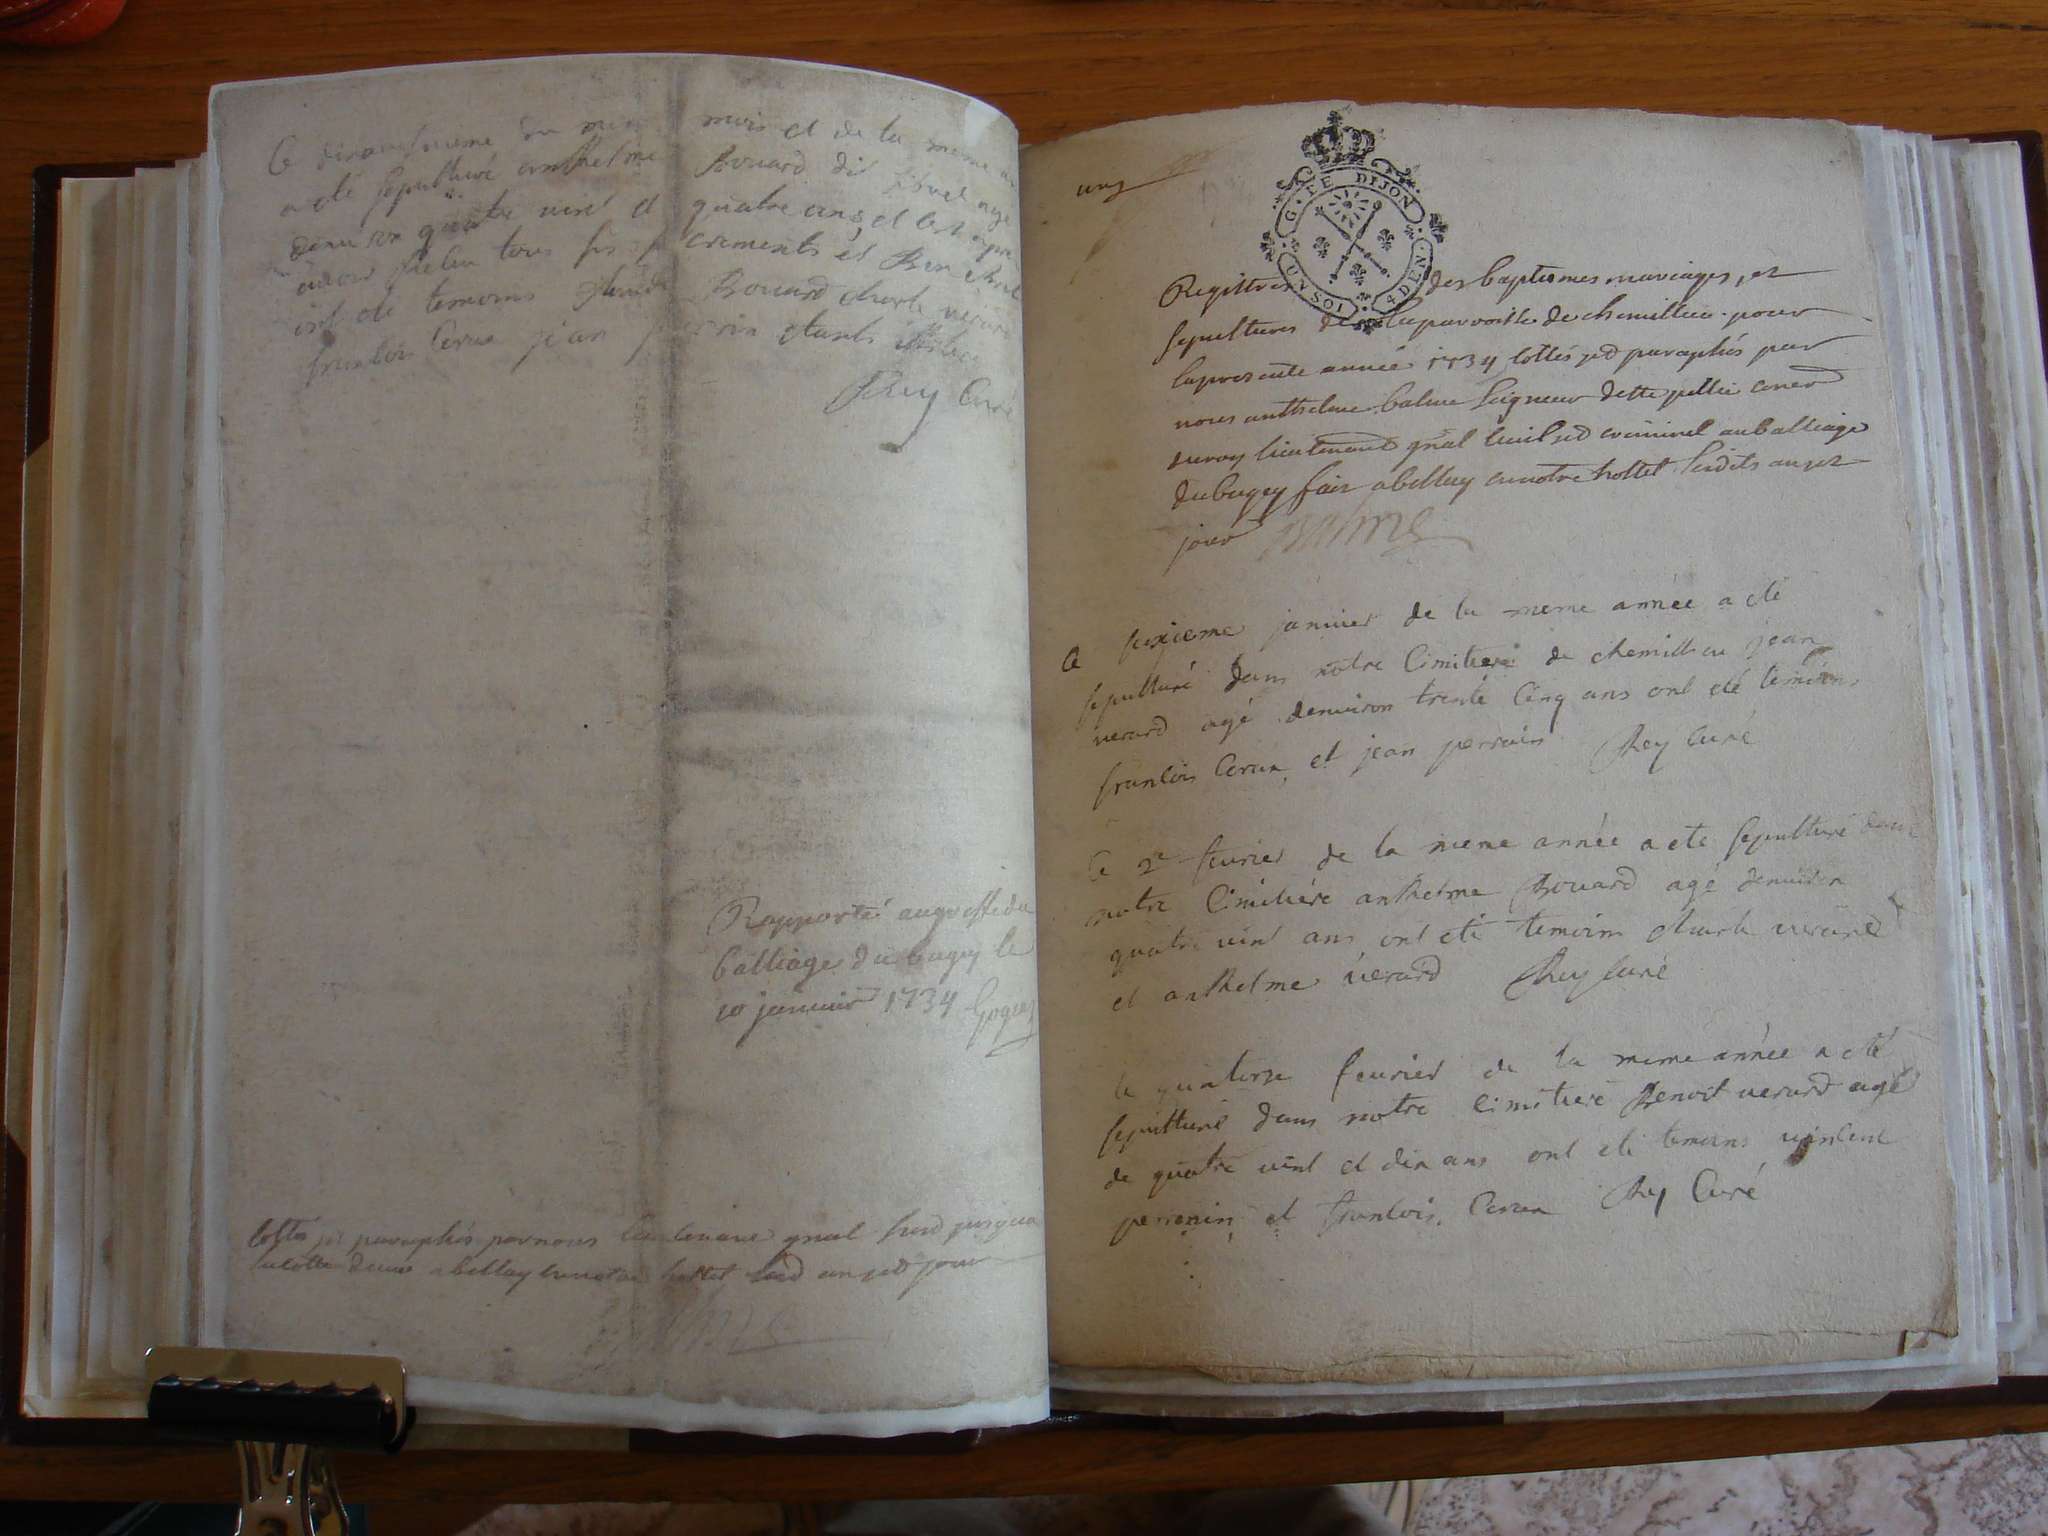 Ce dixneufvieme du mois mois et de la meme
a eté sepulturé anthelme Bouard dit
denviron quatre vint et quatre ans, et
avoir tous ses sacrements et
ont eté temoins Bouard charle verard
francois Cerux jean perrin
Rey Curé
Rapporté au greffe du
balliage du bugey le
10 janvier 1734
Cottés par nous Lieutenant gnal
a bellay en notre hottel jour
ung
G. DE DIJON
UN SOL 4 DEN.
Registres des baptesmes mariages, et
sepultures de la parroisse de chemillieu pour
la presente année 1734 cottés et paraphés par
nous anthelme balme seigneur
du roy lieutenant gnal civil et criminel au balliage
du bugey fait a bellay en notre hottel lesdits an et
jour Balme
Ce seixieme janvier de la meme année a eté
sepulturé dans notre Cimitiere de chemillieu jean
verard agé denviron trente Cinq ans ont eté temoins
francois Cerux, et jean perrain Rey Curé
Ce 2e fevrier de la meme année a ete sepulturé dans
notre Cimitiére anthelme Bouard agé denviron
quatre vint ans ont eté temoins charle verard
et anthelme verard Rey Curé
le quatorze fevrier de la meme année a eté
sepulturé dans notre Cimitiere Benoit verard agé
de quatre vint et dix ans ont eté temoins vincent
perronin, et francois Cerux Rey Curé